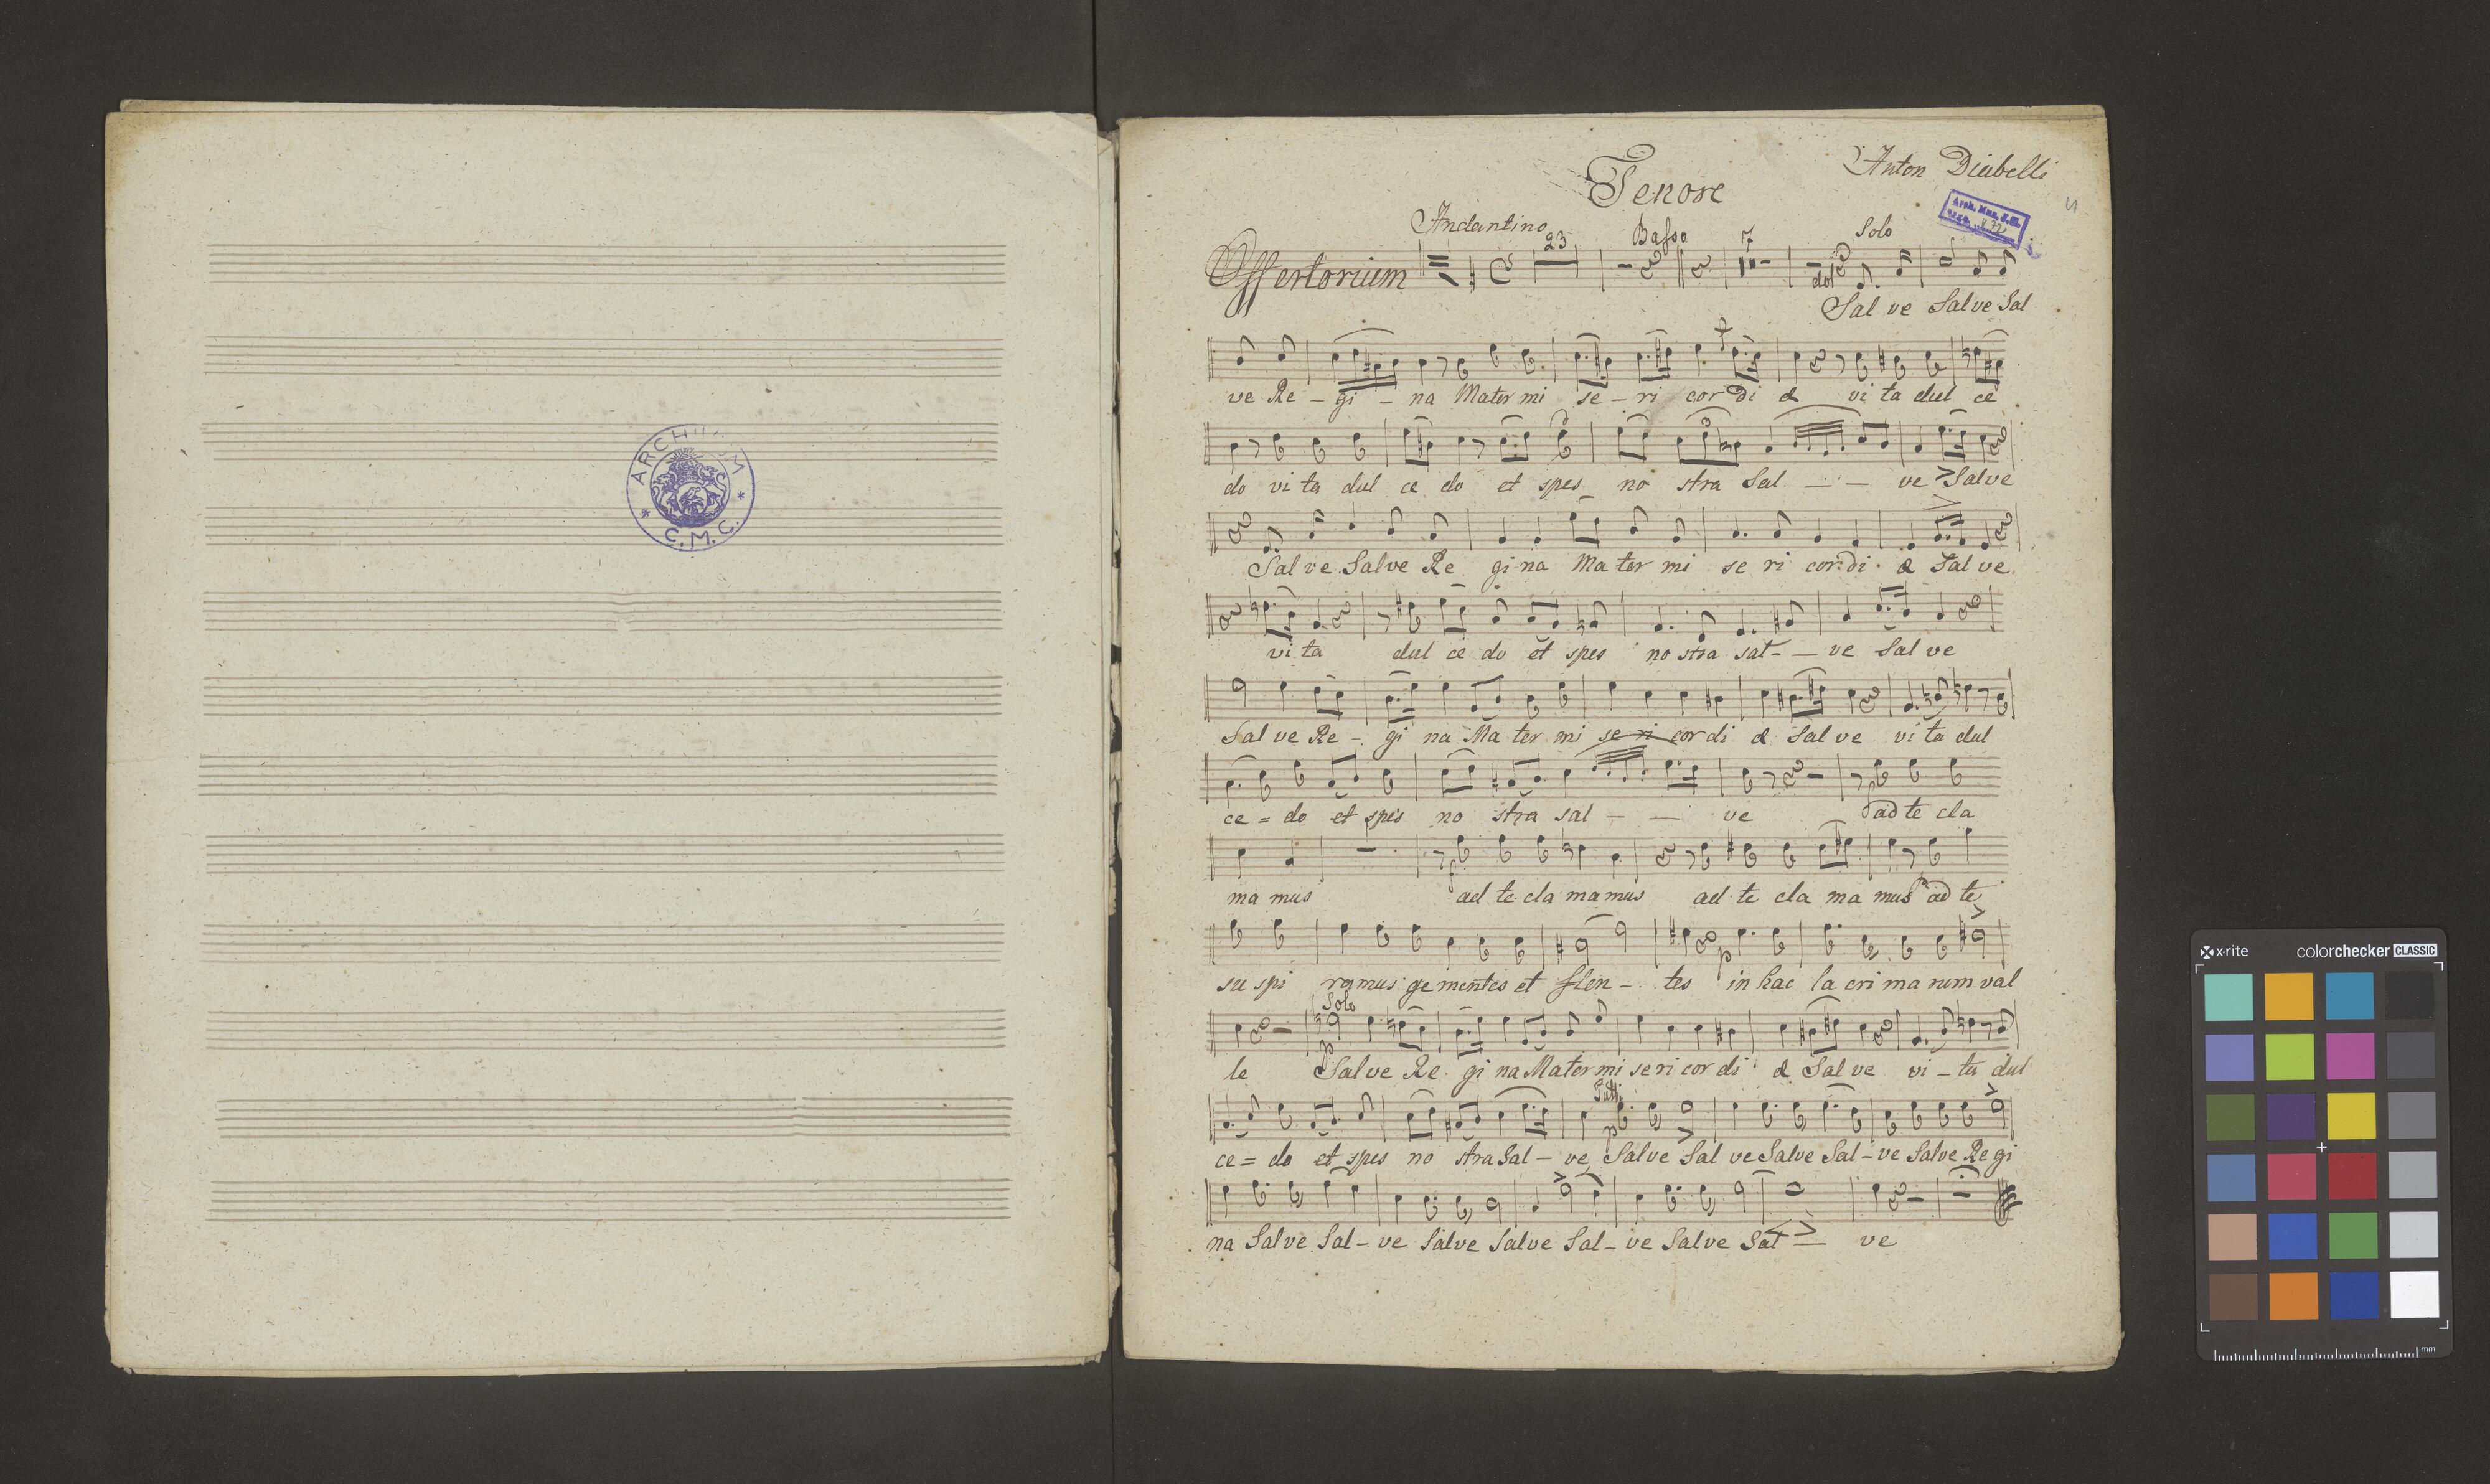 ARCHI M
* C.M.C. *
Anton Diabelli
Tenore
Arch. Mus.
Andantino
23
Basso
7
Solo
Offertorium
dol
Sal ve Salve Sal
ve Re - gi - na Mater mi se - ri cor di æ vi ta dul ce
3
do vi ta dul ce do et spes no stra Sal - - ve Salve
Sal ve Salve Re gi na Ma ter mi se ri cor di æ Sal ve
vi ta dul ce do et spes no stra sal - - ve Sal ve
Sal ve Re - gi na Ma ter mi se ri cor di æ Sal ve vi ta dul
ce = do et spes no stra sal - - ve ad te cla
f
ma mus ad te cla ma mus ad te cla ma mus ad te
p
su spi ramus gementes et flen - tes in hac la cri ma rum val
Solo
p
le Salve Re gi na Mater mi se ri cor di æ Sal ve vi - ta dul
Tutti
p
ce = do et spes no stra Sal - ve Salve Sal ve Salve Sal - ve Salve Re gi
na Salve Sal - ve Salve Salve Sal - ve Salve Sal - ve
x·rite colorchecker CLASSIC
mm